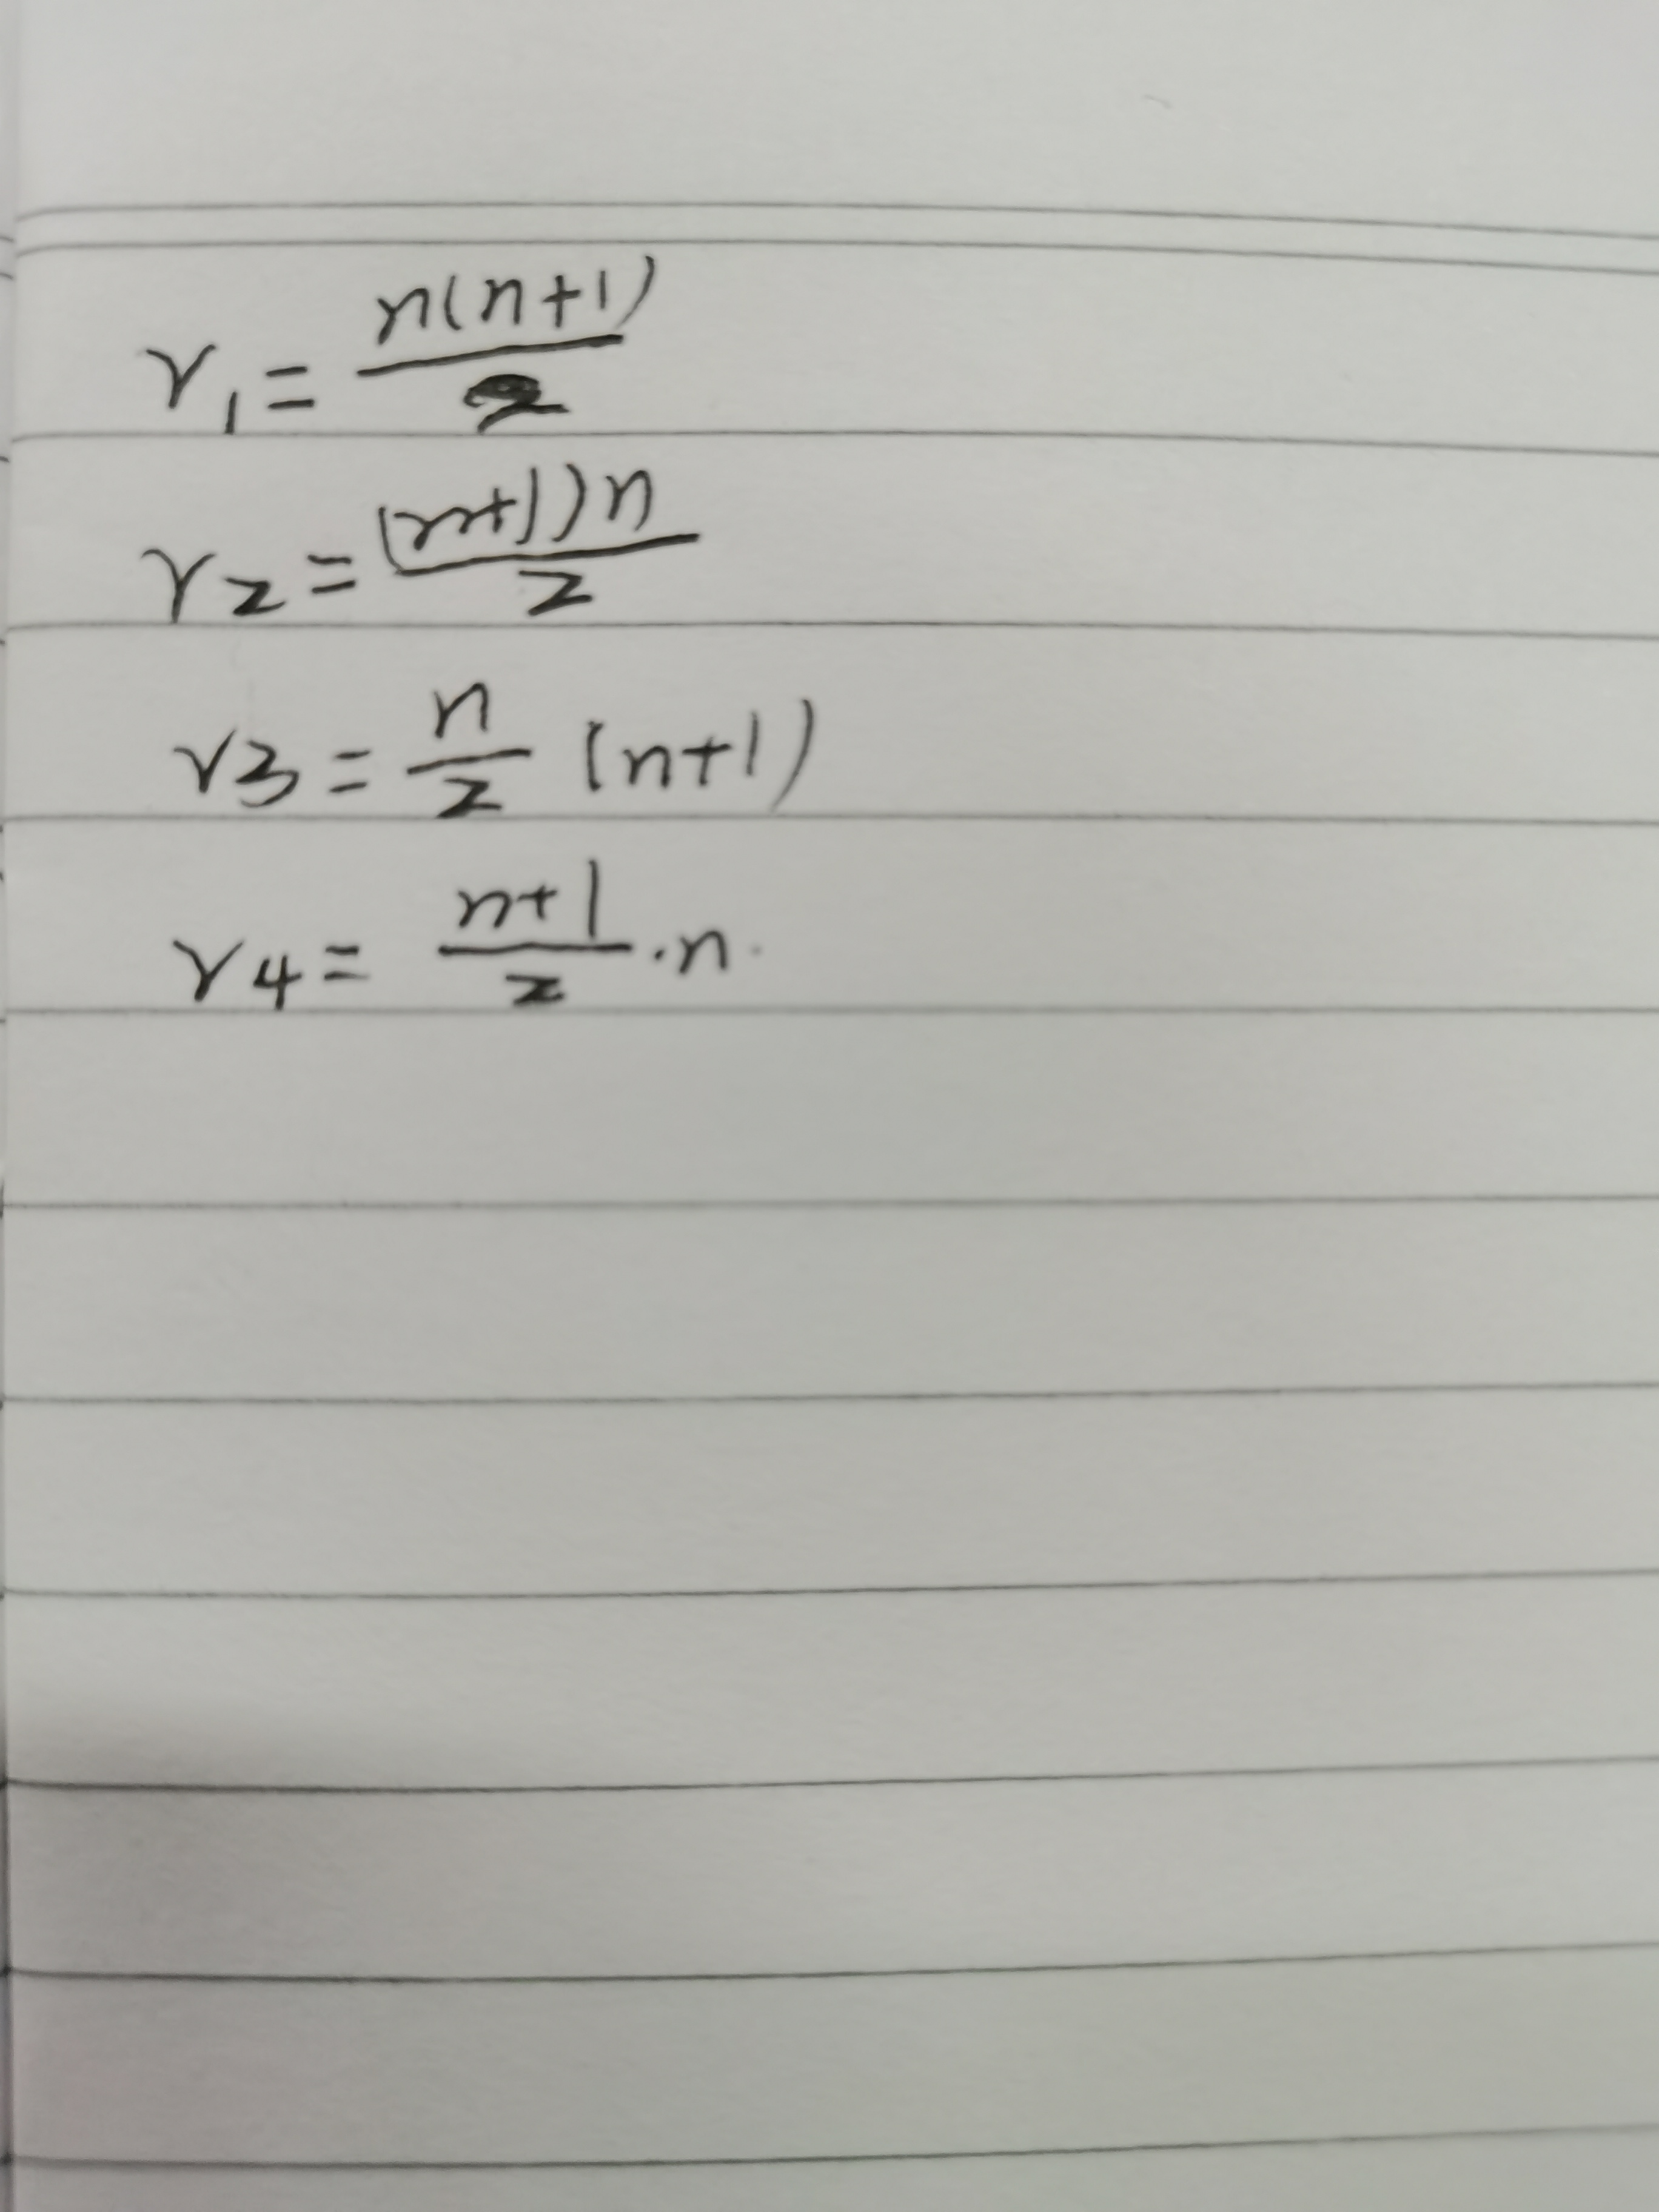 r₁ = n(n+1)/2
r₂ = (n+1)n/2
r3 = n/2 (n+1)
r4 = n+1/2 · n